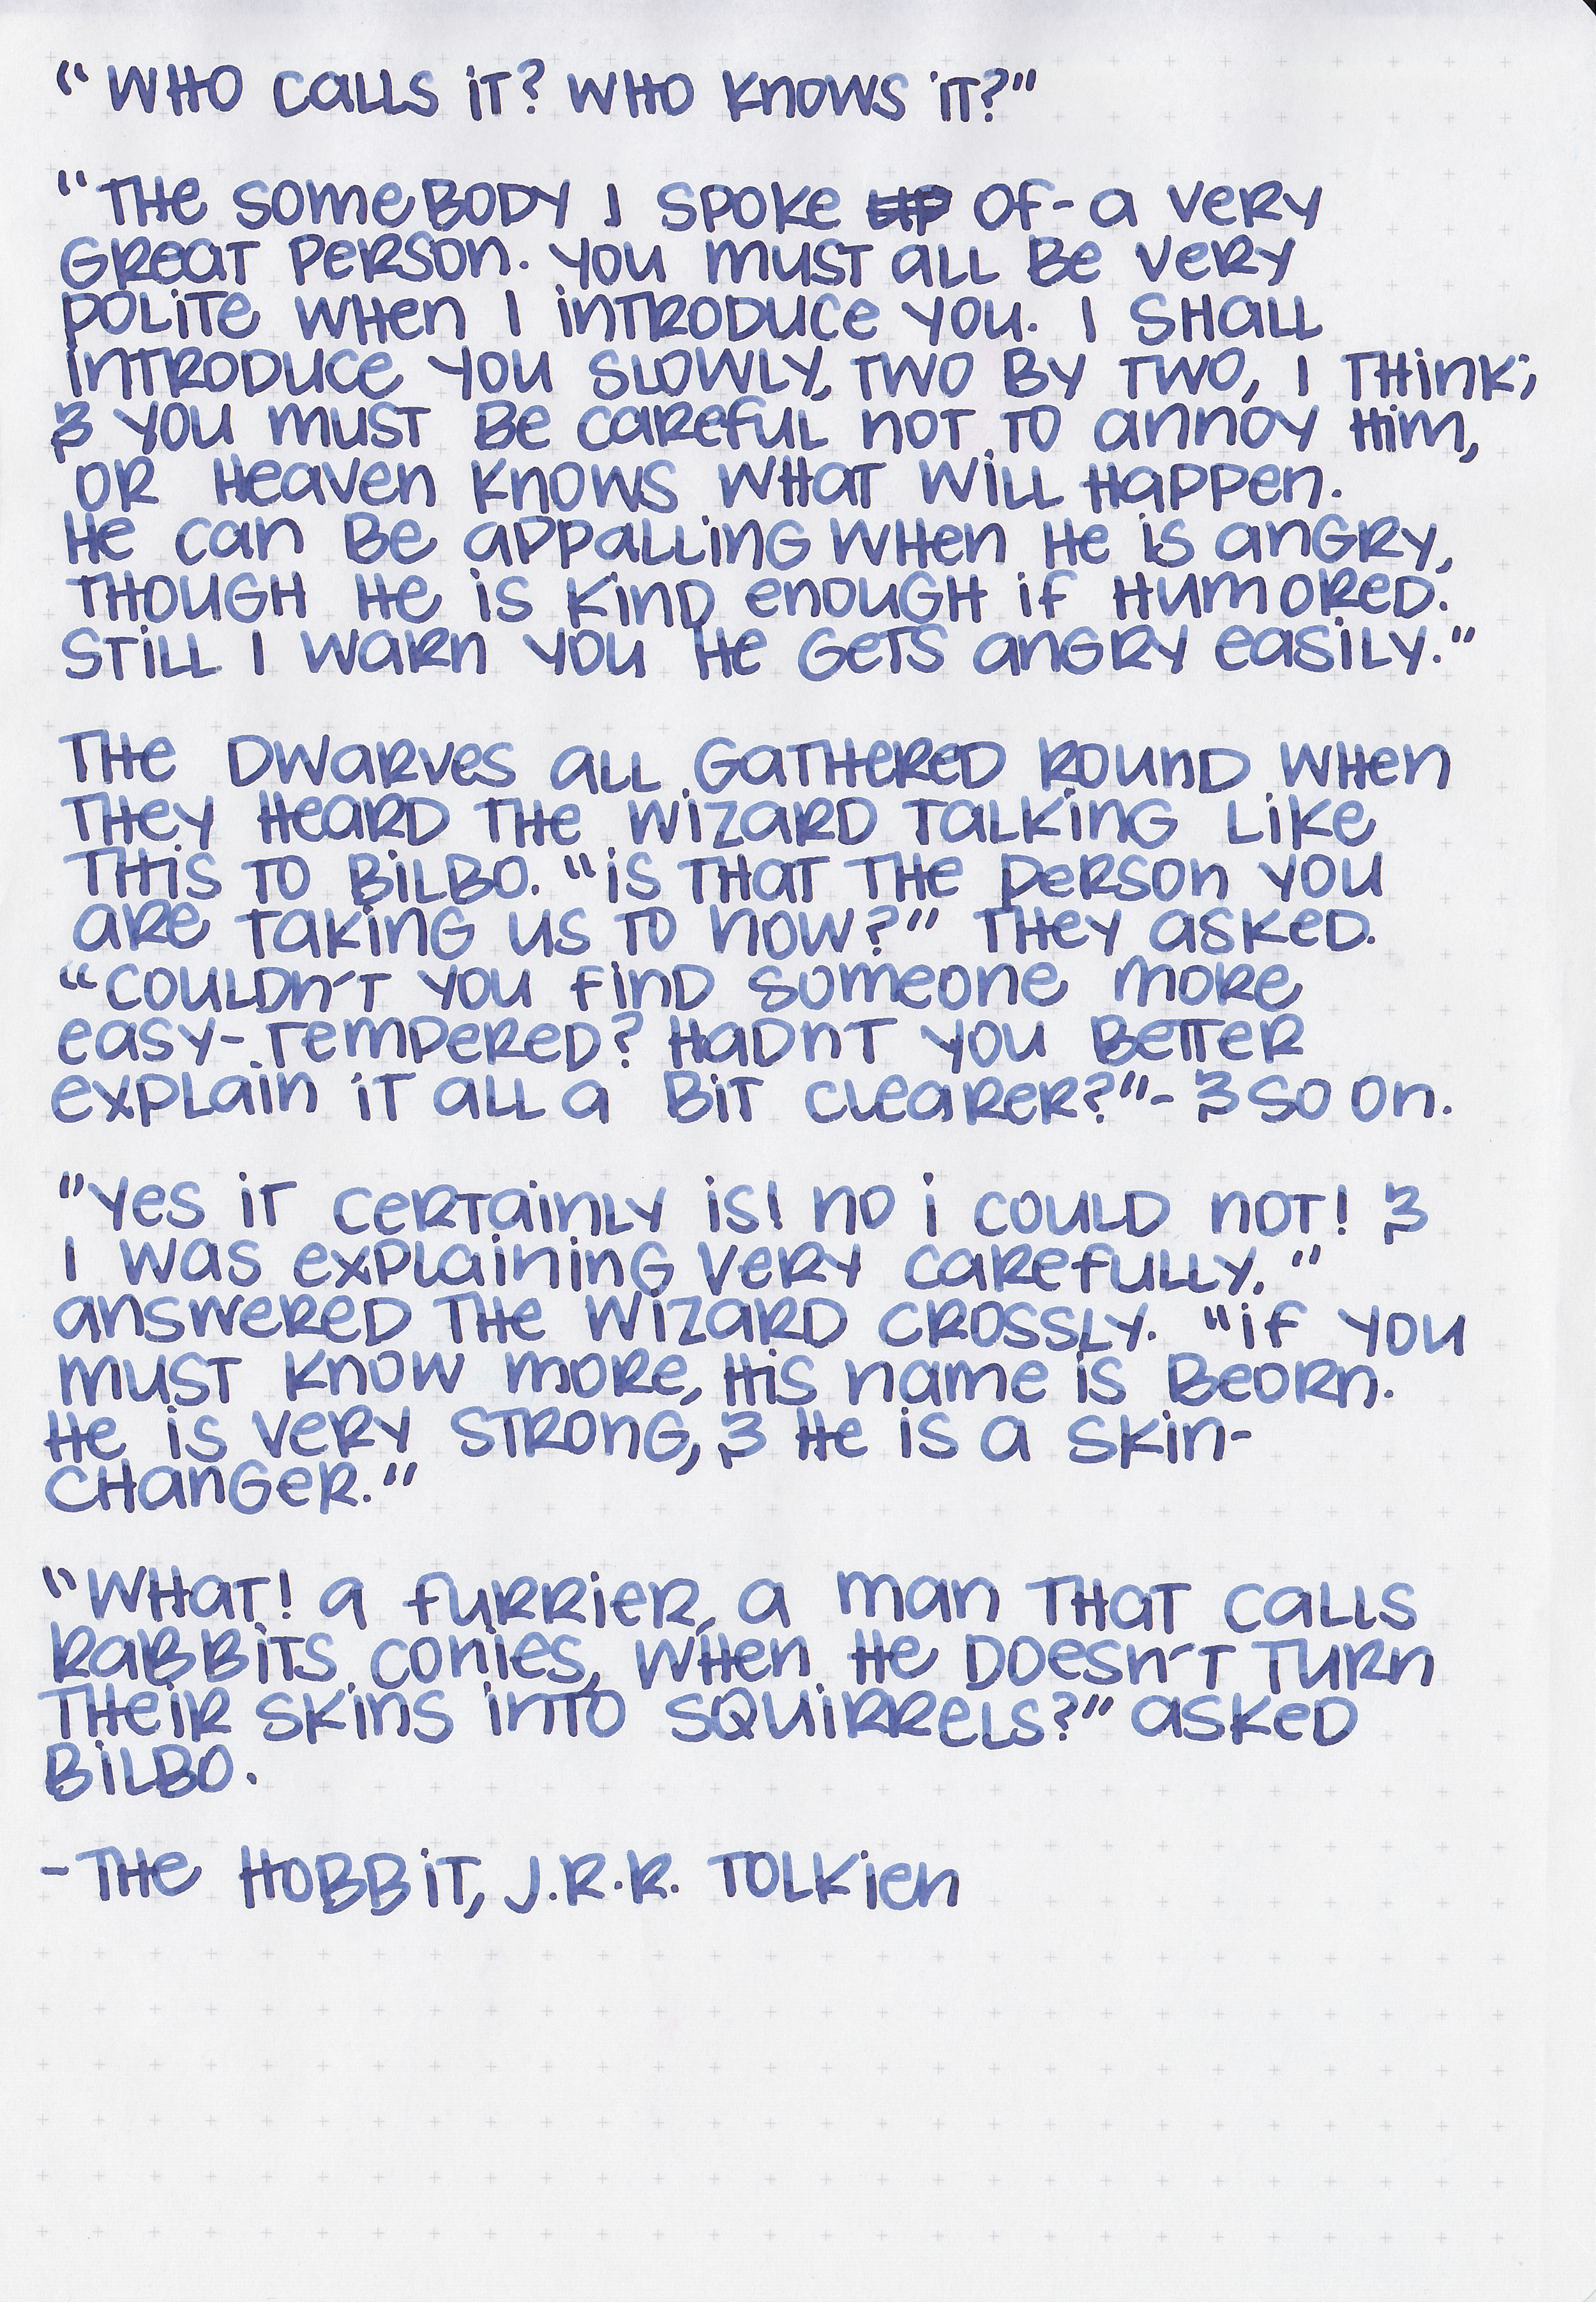 "Who calls it? Who knows it?"
"The somebody I spoke of - a very
great person. You must all be very
polite when I introduce you. I shall
introduce you slowly, two by two, I think;
& you must be careful not to annoy him,
or heaven knows what will happen.
He can be appalling when he is angry,
though he is kind enough if humored.
Still I warn you he gets angry easily."
The dwarves all gathered round when
they heard the wizard talking like
this to Bilbo. "Is that the person you
are taking us to now?" they asked.
"Couldn't you find someone more
easy-tempered? Hadn't you better
explain it all a bit clearer?"- & so on.
"Yes it certainly is! No i could not! &
I was explaining very carefully."
answered the wizard crossly. "If you
must know more, his name is Beorn.
He is very strong, & he is a skin-
changer."
"What! a furrier, a man that calls
rabbits conies, when he doesn't turn
their skins into squirrels?" asked
Bilbo.
- The Hobbit, J.R.R. Tolkien